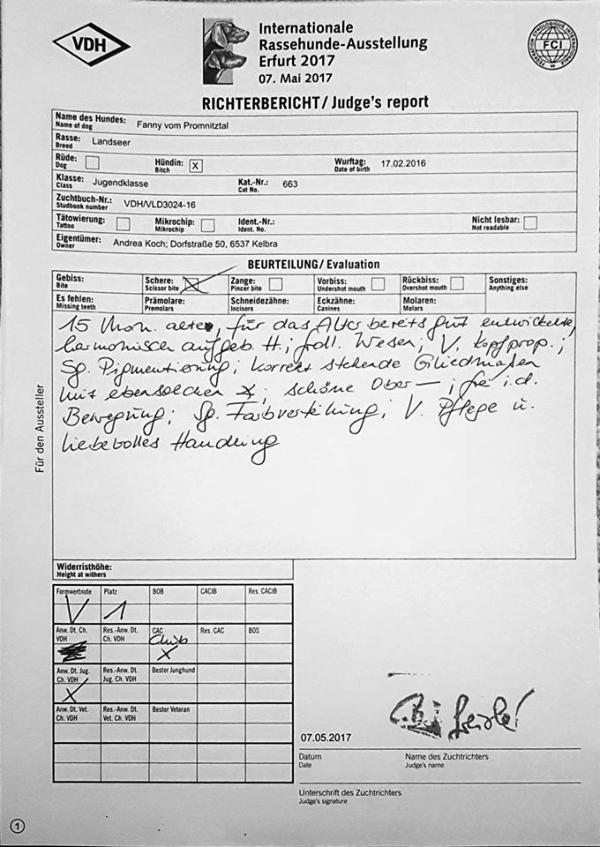 VDH
Internationale
Rassehunde-Ausstellung
Erfurt 2017
07. Mai 2017
FEDERATION CYNOLOGIQUE INTERNATIONALE
FCI
RICHTERBERICHT/Judge's report
Name des Hundes: Fanny vom Promnitztal
Name of dog
Rasse: Landseer
Breed
Rüde: Hündin: X Wurftag: 17.02.2016
Dog Bitch Date of birth
Klasse: Jugendklasse Kat.-Nr.: 663
Class Cat No.
Zuchtbuch-Nr.: VDH/VLD3024-16
Studbook number
Tätowierung: Mikrochip: Ident.-Nr.: Nicht lesbar:
Tattoo Mikrochip Ident. No. Not readable
Eigentümer: Andrea Koch; Dorfstraße 50, 6537 Kelbra
Owner
BEURTEILUNG/Evaluation
Gebiss: Schere: X Zange: Vorbiss: Rückbiss: Sonstiges:
Bite Scissor bite Pincer bite Undershot mouth Overshot mouth Anything else
Es fehlen: Prämolare: Schneidezähne: Eckzähne: Molaren:
Missing teeth Premolars Incisors Canines Molars
15 Mon. alte, für das Alter bereits gut entwickelte,
harmonisch aufgeb. H.; frdl. Wesen; V. Kopfprop.;
Sp. Pigmentierung; korrekt stehende Gliedmaßen
mit ebensolchen; schöne Ober—; frei i.d.
Bewegung; Sp. Farbverteilung; V. Pflege u.
liebevolles Handling
Für den Aussteller
Widerristhöhe:
Height at withers
Formwertnote Platz BOB CACIB Res. CACIB
V 1
Anw. Dt. Ch. VDH Res.-Anw. Dt. Ch. VDH CAC Res. CAC BOS
Club
X
Anw. Dt. Jug. Ch. VDH Res.-Anw. Dt. Jug. Ch. VDH Bester Junghund
X
Anw. Dt. Vet. Ch. VDH Res.-Anw. Dt. Vet. Ch. VDH Bester Veteran
07.05.2017
Datum Name des Zuchtrichters
Date Judge's name
Unterschrift des Zuchtrichters
Judge's signature
1